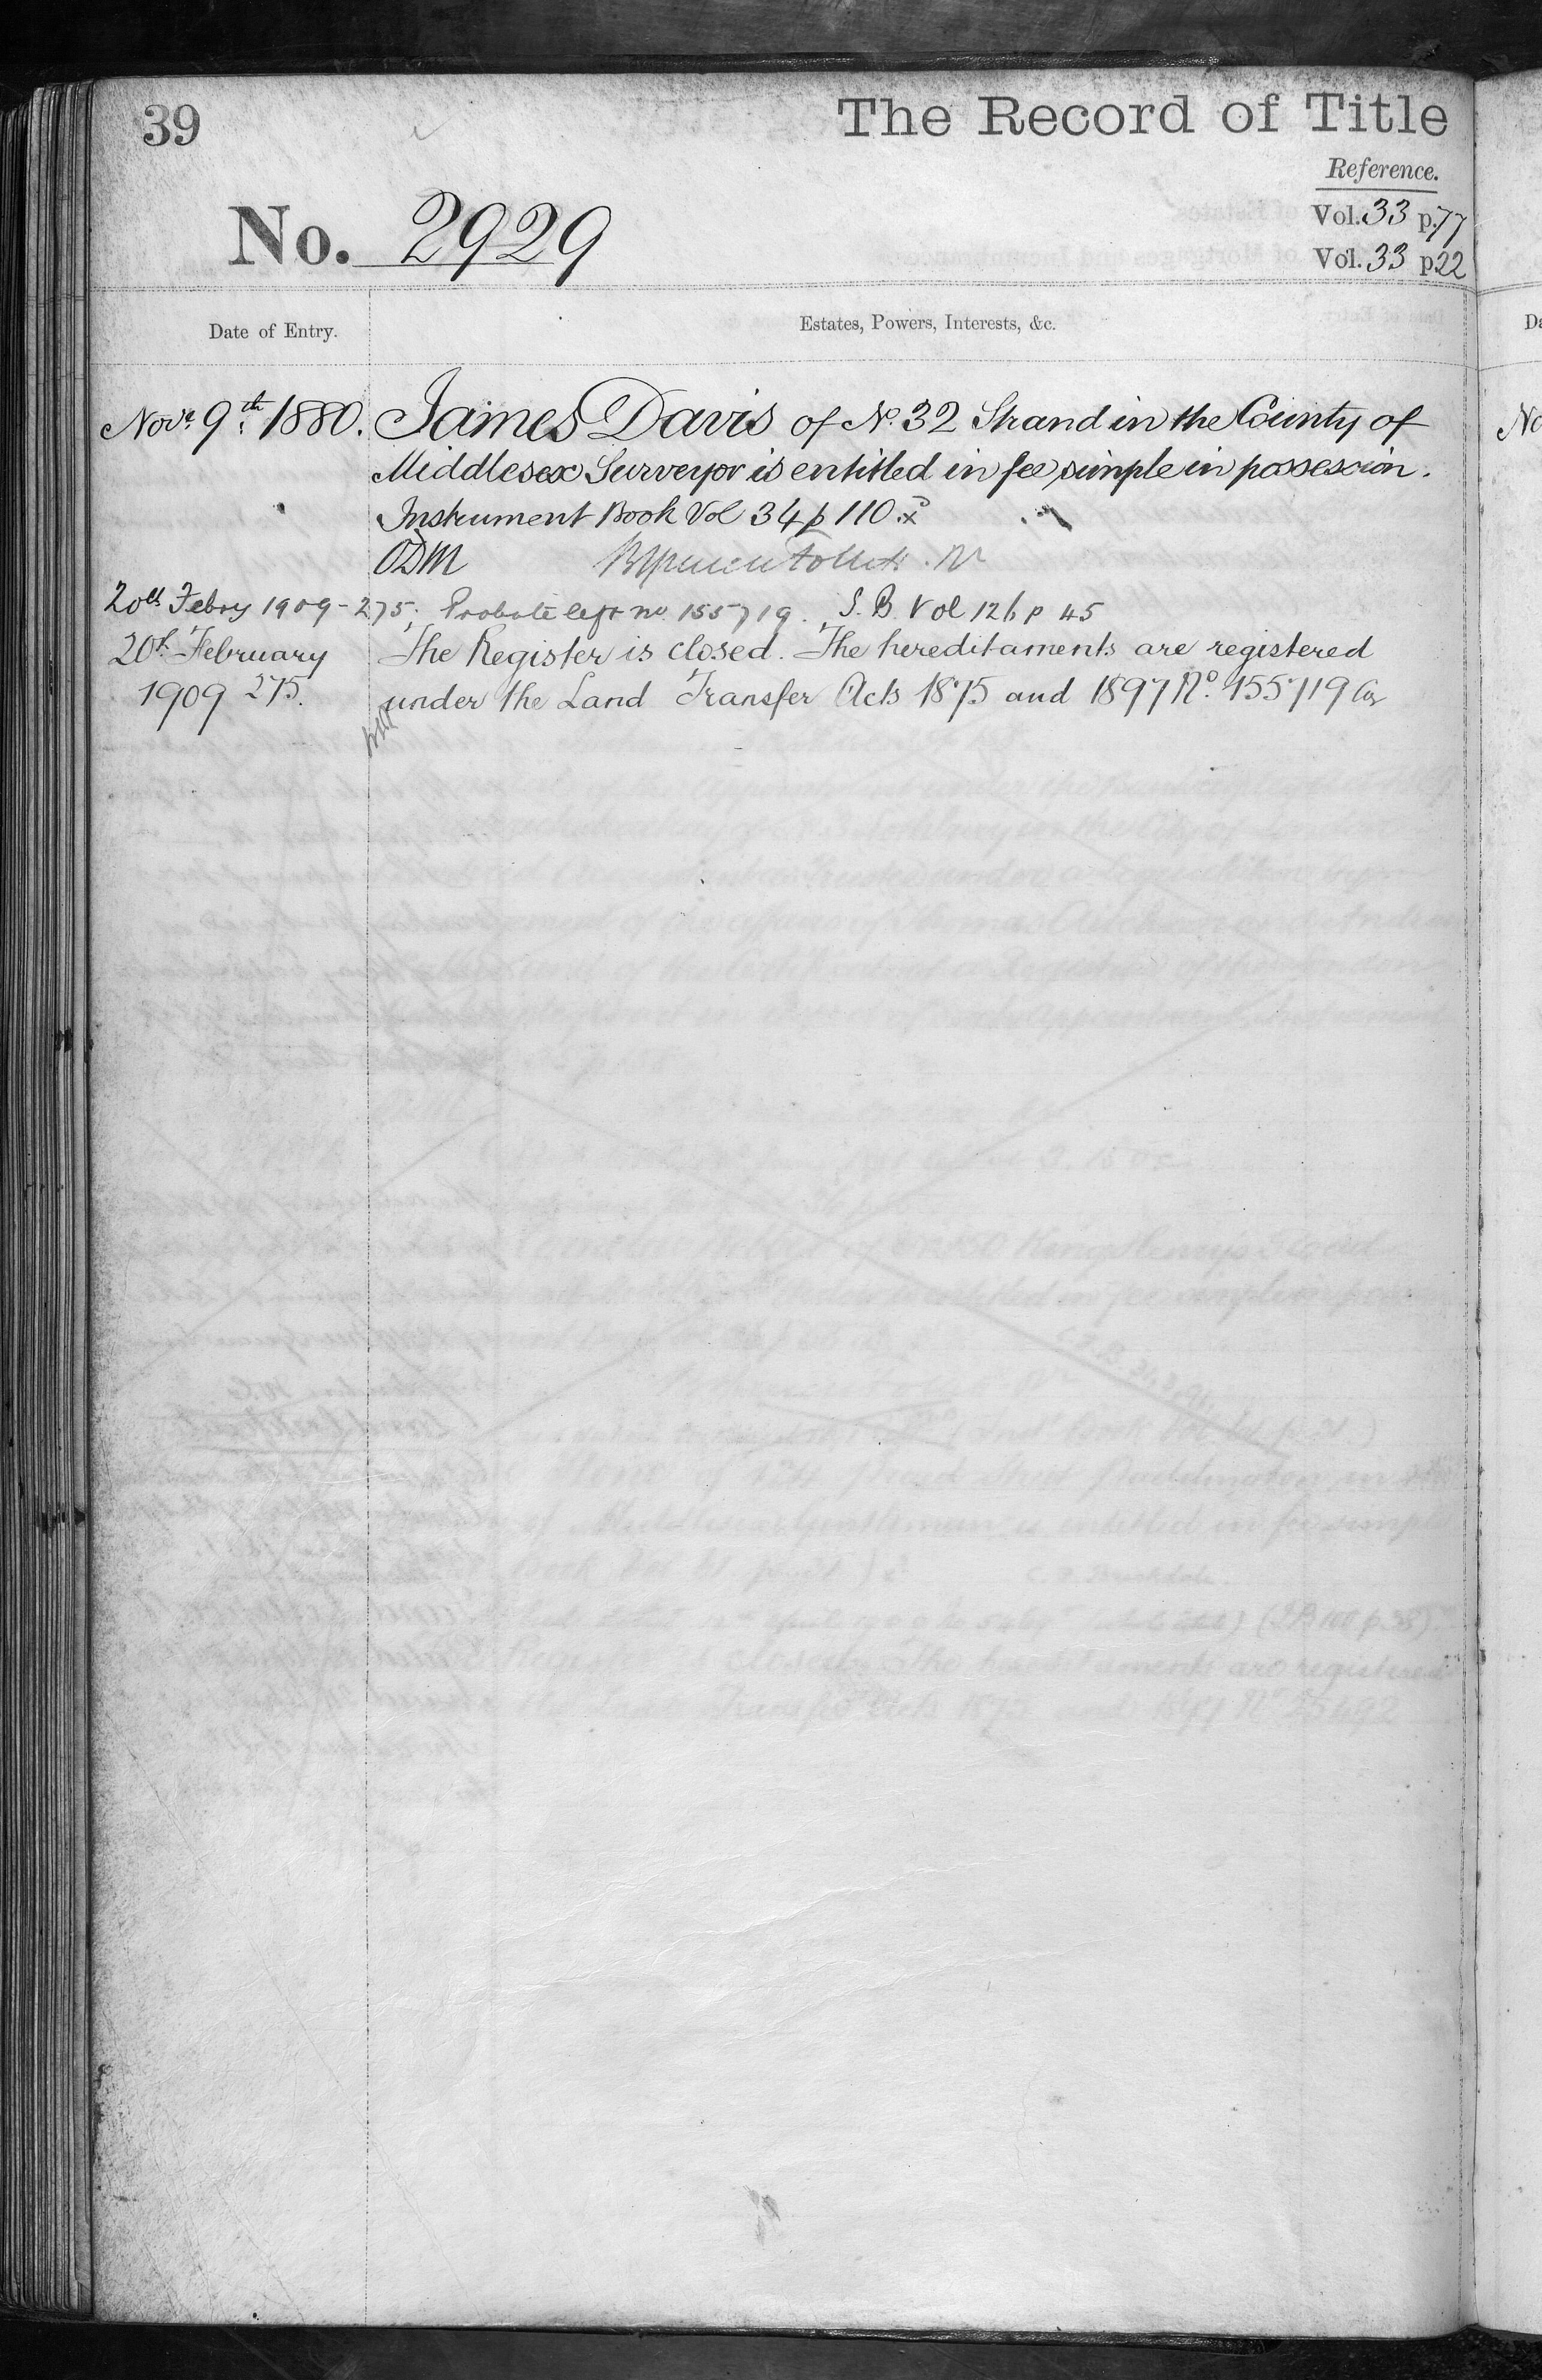 39
The Record of Title
Reference.
No. 2929
Vol. 33 p. 77
Vol. 33 p 22
Date of Entry.
Estates, Powers, Interests, &c.
Novr. 9th. 1880. James Davis of No. 32 Strand in the County of
Middlesex Surveyor is entitled in fee simple in possession.
Instrument Book Vol 34 p 110. x
ODM
20th Febry 1909 - 275; Probate left no 155719. S. B. Vol 126 p 45
20th February The Register is closed. The hereditaments are registered
1909 275. under the Land Transfer Acts 1875 and 1897 No. 155719